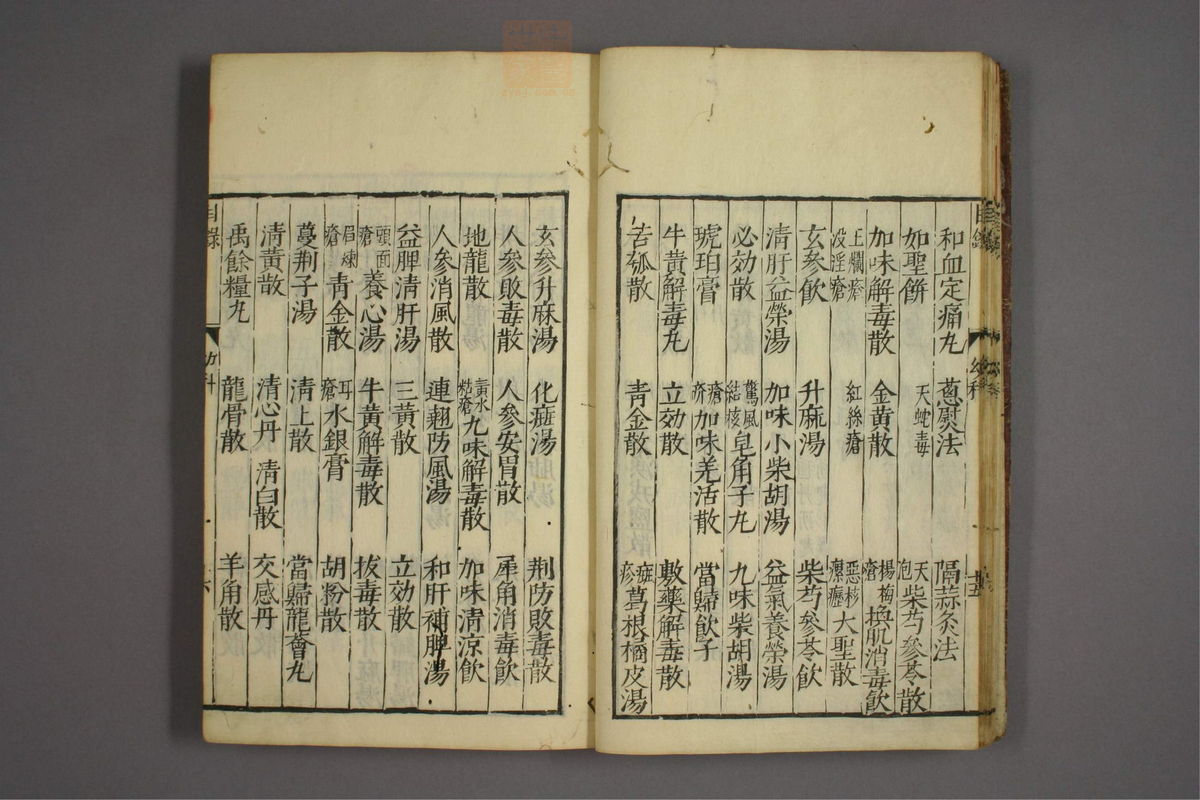 和血定痛丸 葱熨法 隔蒜灸法
如聖餅 天蛇毒 天疱柴芍參苓散
加味解毒散 金黃散 楊梅瘡換肌消毒飲
王爛瘡 没淫瘡 紅絲瘡 惡核瘰癧大聖散
玄參飲 升麻湯 柴芍參苓飲
清肝益榮湯 加味小柴胡湯 益氣養榮湯
必効散 驚風結核皂角子丸 九味柴胡湯
琥珀膏 瘡疥加味羌活散 當歸飲子
牛黃解毒丸 立効散 敷藥解毒散
苦瓠散 青金散 癍疹葛根橘皮湯
玄參升麻湯 化癍湯 荆防敗毒散
人參敗毒散 人參安胃散 犀角消毒飲
地龍散 黃水粘瘡九味解毒散 加味清凉飲
人參消風散 連翹防風湯 和肝補脾湯
益脾清肝湯 三黃散 立効散
頭面瘡養心湯 牛黃解毒散 拔毒散
眉煉瘡青金散 耳瘡水銀膏 胡粉散
蔓荆子湯 清上散 當歸龍薈丸
清黃散 清心丹 清白散 交感丹
禹餘糧丸 龍骨散 羊角散
目錄